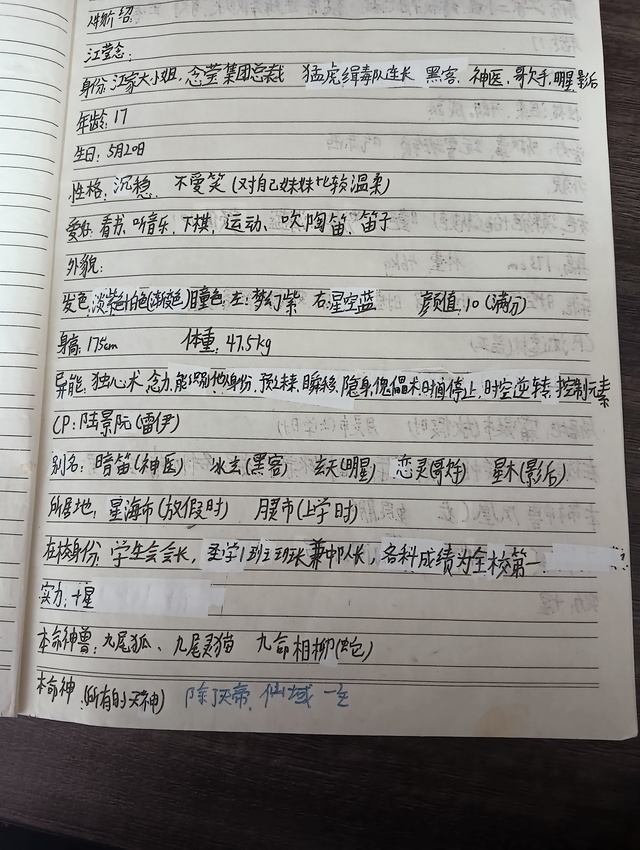 人物介绍:
江莹念:
身份:江家大小姐,念莹集团总裁 猛虎缉毒队连长 黑客、神医、歌手、明星影后
年龄:17
生日:5月20日
性格:沉稳、不爱笑(对自己妹妹比较温柔)
爱好:看书、听音乐、下棋、运动、吹陶笛、笛子
外貌:
发色:淡紫色白色(渐变色)瞳色:左:梦幻紫 右:星空蓝 颜值:10(满分)
身高:175cm 体重:47.5kg
异能:独心术、念力,能识别他身份,预知未来,瞬移,隐身,傀儡术,时间停止,时空逆转,控制元素
CP:陆景阮(雷伊)
别名:暗笛(神医) 冰玄(黑客) 玄天(明星) 恋灵(歌手) 星木(影后)
所居地:星海市(放假时) 月翼市(上学时)
在校身份:学生会会长,圣学1班班长兼中队长,各科成绩为全校第一
实力:十星
本命神兽:九尾狐、九尾灵猫 九命相柳(蛇)
本命神(所有的天神) 除灭帝、仙域